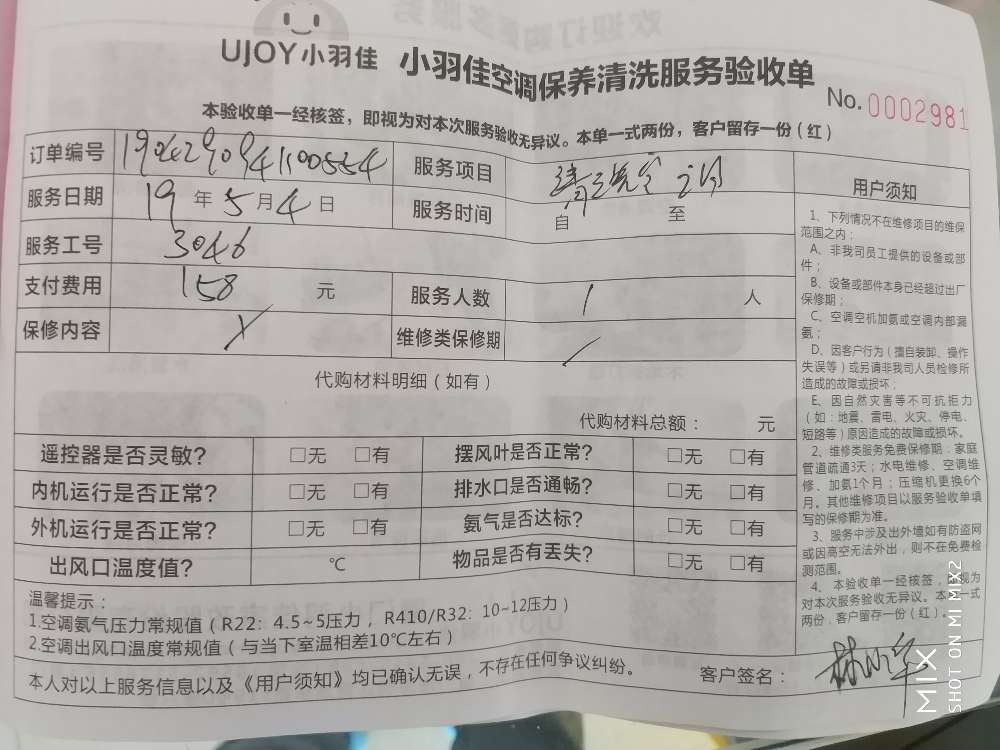 UJOY小羽佳 小羽佳空调保养清洗服务验收单
No.0002981
本验收单一经核签，即视为对本次服务验收无异议。本单一式两份，客户留存一份（红）
订单编号 服务项目 清洗空调
服务日期 19年5月4日 服务时间 自 至
服务工号 3046
支付费用 158 元 服务人数 1 人
保修内容 维修类保修期
代购材料明细（如有）
代购材料总额： 元
遥控器是否灵敏? □无 □有 摆风叶是否正常? □无 □有
内机运行是否正常? □无 □有 排水口是否通畅? □无 □有
外机运行是否正常? □无 □有 氨气是否达标? □无 □有
出风口温度值? ℃ 物品是否有丢失? □无 □有
温馨提示：
1.空调氨气压力常规值（R22：4.5~5压力，R410/R32：10~12压力）
2.空调出风口温度常规值（与当下室温相差10℃左右）
本人对以上服务信息以及《用户须知》均已确认无误，不存在任何争议纠纷。 客户签名：
用户须知
1、下列情况不在维修项目的维保
范围之内：
A、非我司员工提供的设备或部
件；
B、设备或部件本身已经超过出厂
保修期；
C、空调空机加氨或空调内部漏
氨；
D、因客户行为（擅自装卸、操作
失误等）或另请非我司人员检修所
造成的故障或损坏；
E、因自然灾害等不可抗拒力
（如：地震、雷电、火灾、停电、
短路等）原因造成的故障或损坏。
2、维修类服务免费保修期：家庭
管道疏通3天；水电维修、空调维
修、加氨1个月；压缩机更换6个
月。其他维修项目以服务验收单填
写的保修期为准。
3、服务中涉及出外墙如有防盗网
或因高空无法外出，则不在免费检
测范围。
4、本验收单一经核签，即视为
对本次服务验收无异议。本单一式
两份，客户留存一份（红）。
MIX
SHOT ON MI MIX2